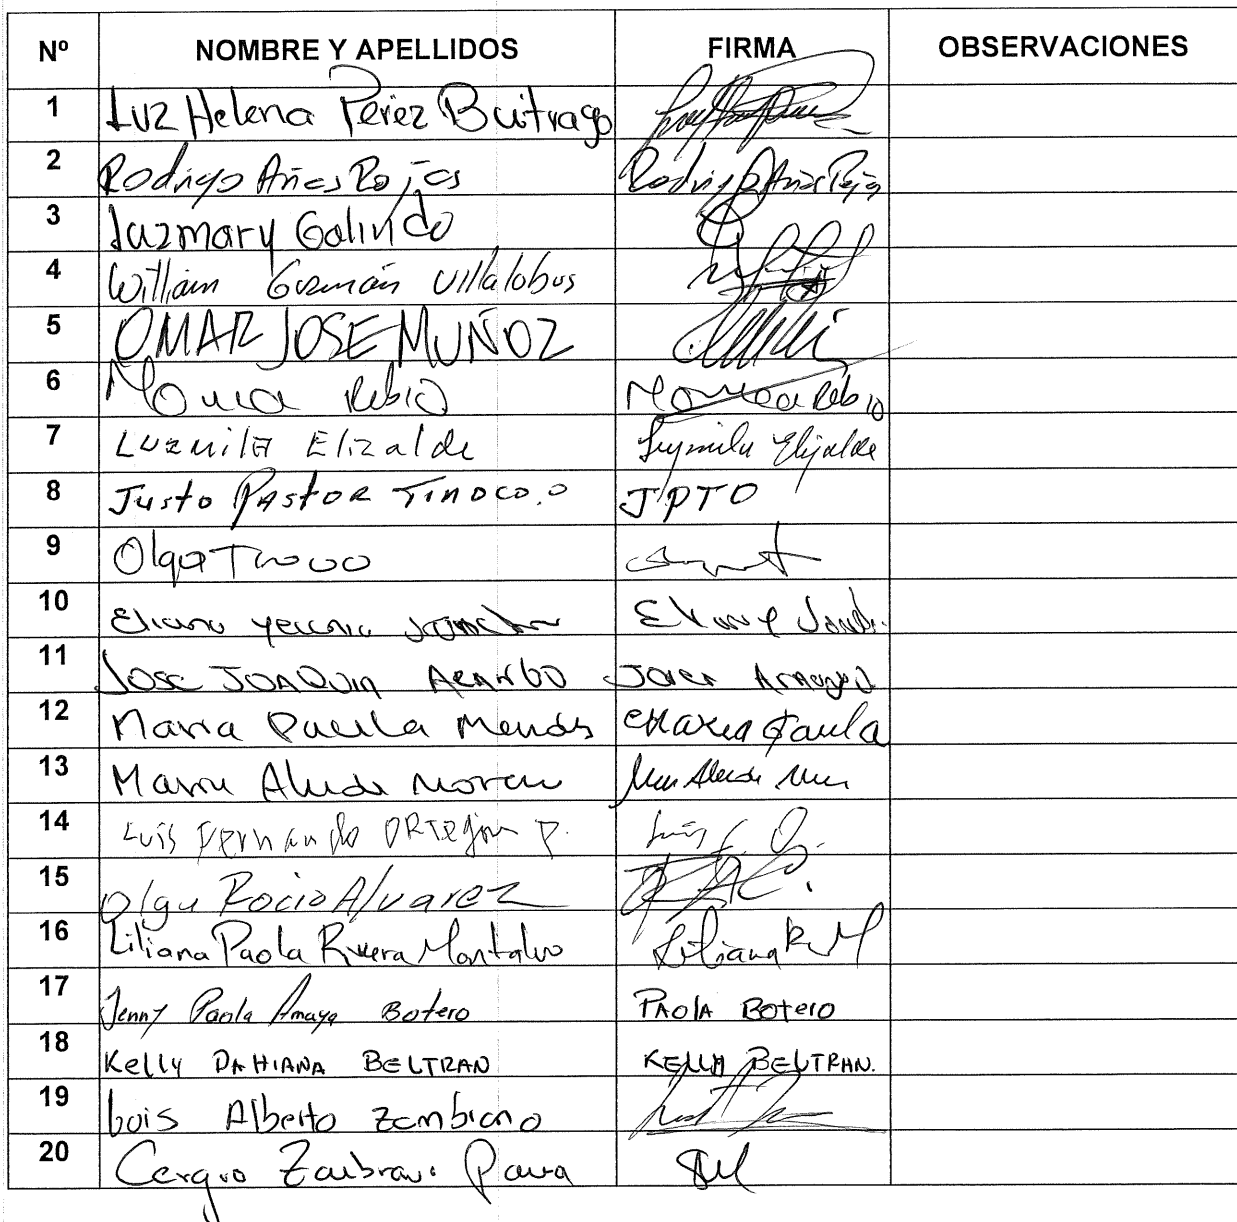 Nº NOMBRE Y APELLIDOS FIRMA OBSERVACIONES
1 Luz Helena Pérez Buitrago
2 Rodrigo Arias Rojas Rodrigo Arias Rojas
3 Luzmary Galindo
4 William Guzmán Villalobos
5 OMAR JOSE MUÑOZ
6 Monica Rubio Monica Rubio
7 Luzmila Elizalde Luzmila Elizalde
8 Justo PAstOR TINOCO.O JPTO
9 Olga
10 Eliana
11 Jose JOAQUIN
12 Maria Paula Mendes Maria Paula
13 Maria Moreno
14 Luis Fernando ORTegon P. Luis F. O.
15 Olga Rocio Alvarez
16 Liliana Paola Rivera Montalvo Liliana R M
17 Jenny Paola Amaya Botero PAOlA BOtero
18 Kelly DAHIANA BELTRAN KELLY BELTRAN.
19 Luis Alberto Zambrano
20 Cergio Zambrano Parra